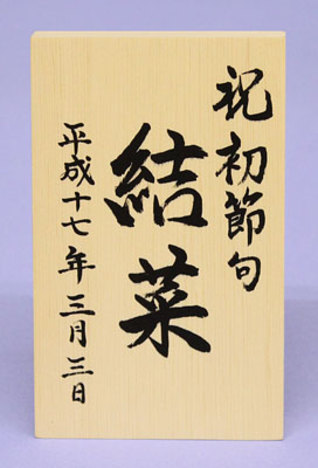 祝初節句
結菜
平成十七年三月三日